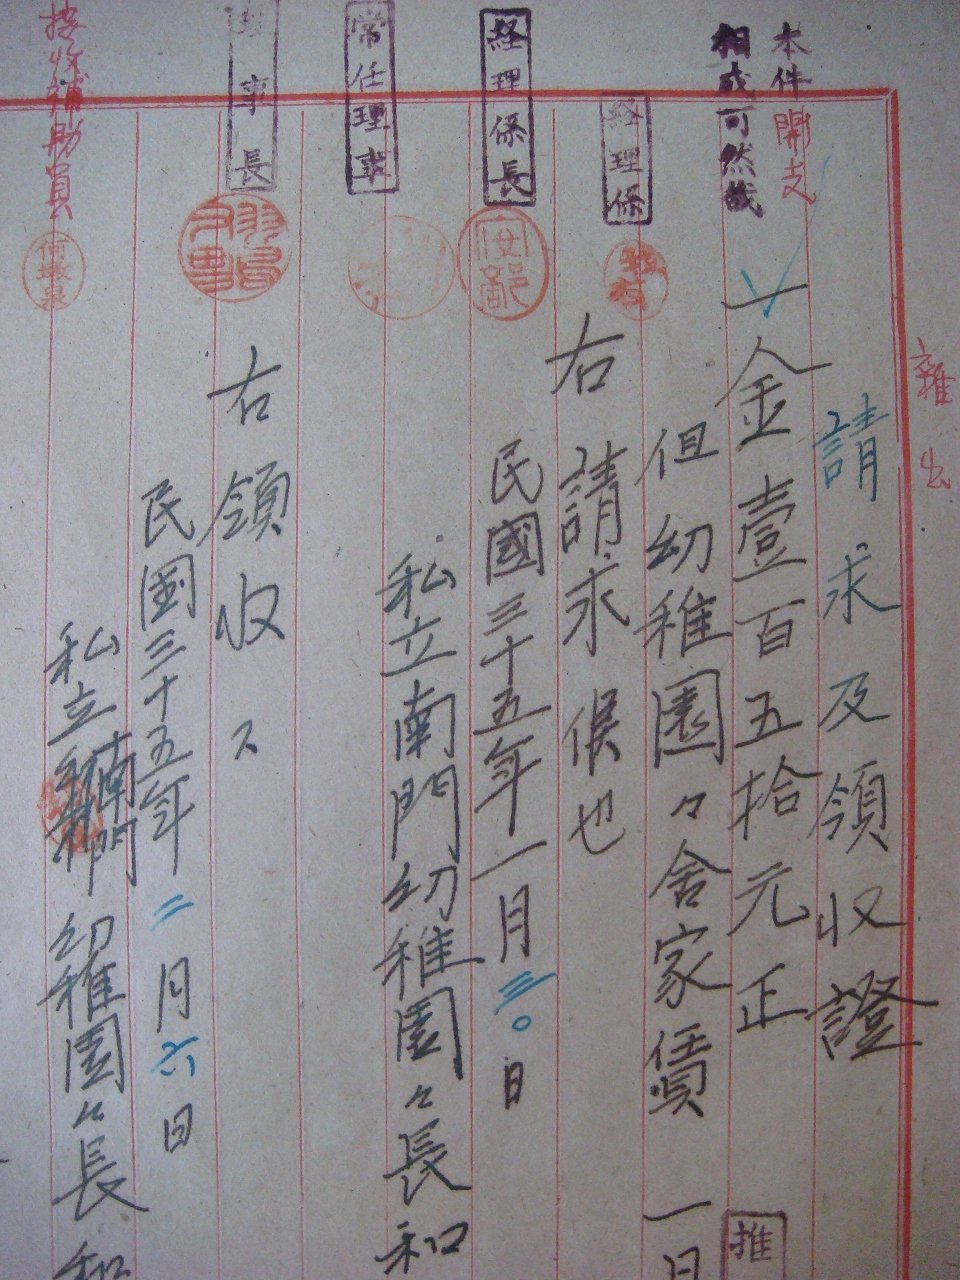 雜出
請求及領收證
本件開支
相成可然哉
一金壹百五拾元正
推
經理係
但幼稚園々舍家賃 一月
右請求候也
經理係長
安部
民國三十五年一月三〇日
常任理事
私立南門幼稚園々長 和
理事長
右領收ス
民國三十五年二月六日
接收補助員
私立南門幼稚園々長 和